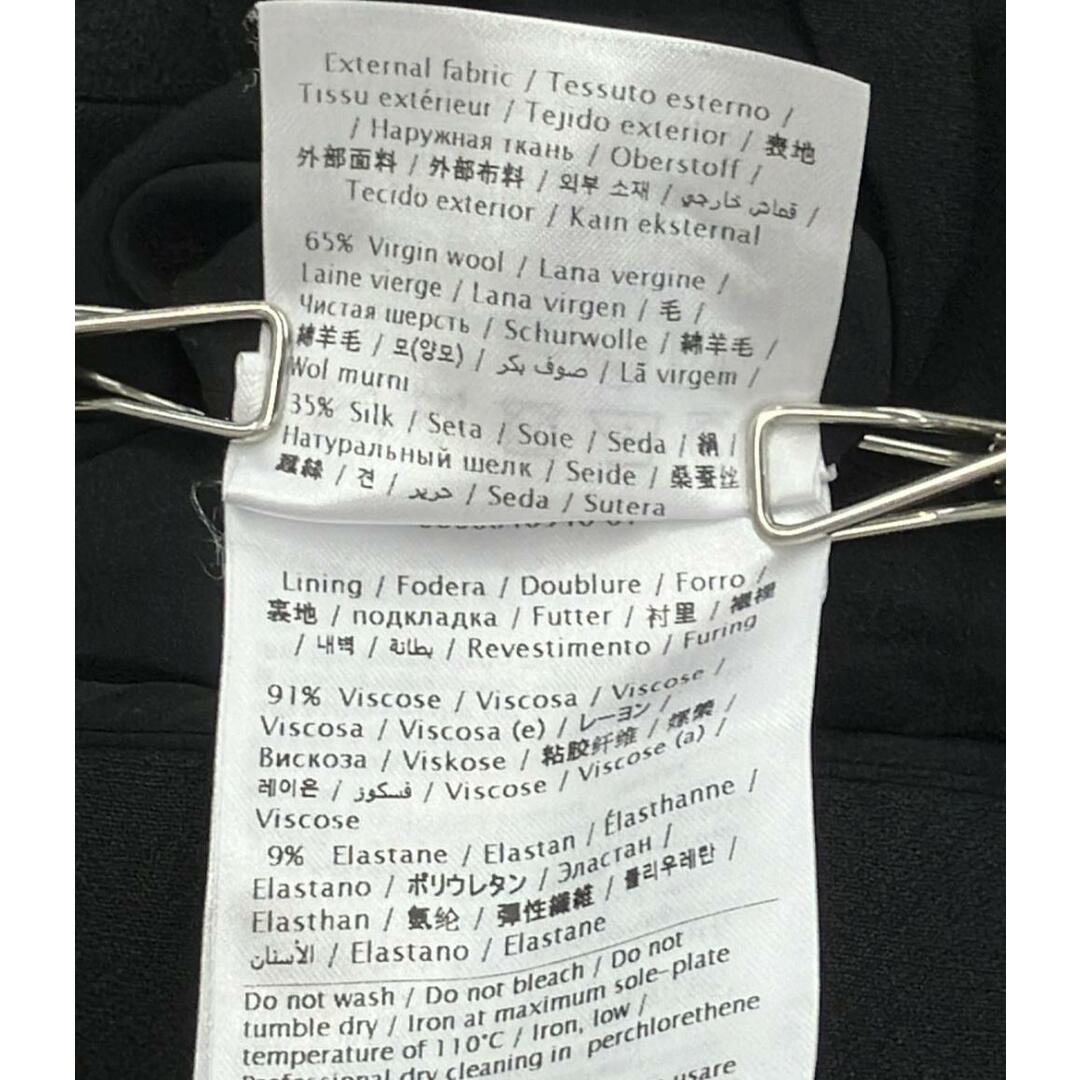 External fabric / Tessuto esterno /
Tissu extérieur / Tejido exterior / 表地
/ Наружная ткань / Oberstoff /
外部面料 / 外部布料 / 외부 소재 / قماش خارجي /
Tecido exterior / Kain eksternal
65% Virgin wool / Lana vergine /
Laine vierge / Lana virgen / 毛 /
Чистая шерсть / Schurwolle / 綿羊毛 /
綿羊毛 / 모(양모) / صوف بكر / Lã virgem /
Wol murni
35% Silk / Seta / Soie / Seda / 絹 /
Натуральный шелк / Seide / 桑蚕丝
蠶絲 / 견 / حرير / Seda / Sutera
Lining / Fodera / Doublure / Forro /
裏地 / подкладка / Futter / 衬里 / 襯裡
/ 내벽 / بطانة / Revestimento / Furing
91% Viscose / Viscosa / Viscose /
Viscosa / Viscosa (e) / レーヨン /
Вискоза / Viskose / 粘胶纤维 / 嫘縈 /
레이온 / فسكوز / Viscose / Viscose (a) /
Viscose
9% Elastane / Elastan / Élasthanne /
Elastano / ポリウレタン / Эластан /
Elasthan / 氨纶 / 彈性纖維 / 폴리우레탄 /
الأسنان / Elastano / Elastane
Do not wash / Do not bleach / Do not
tumble dry / Iron at maximum sole-plate
temperature of 110°C / Iron, low /
Professional dry cleaning in perchlorethene
usare